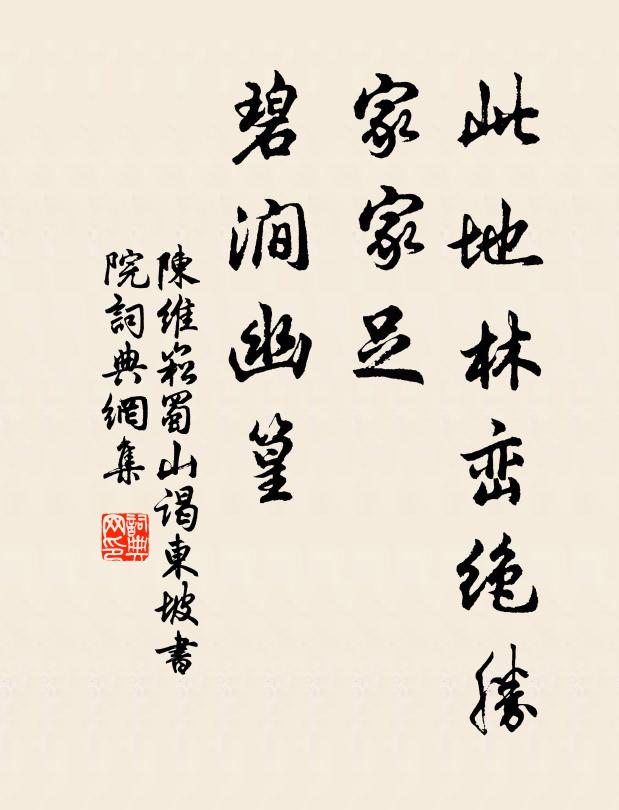 此地林峦绝勝
家家足
碧澗幽篁
陳維崧蜀山謁東坡書
院詞典網集
詞典
网印